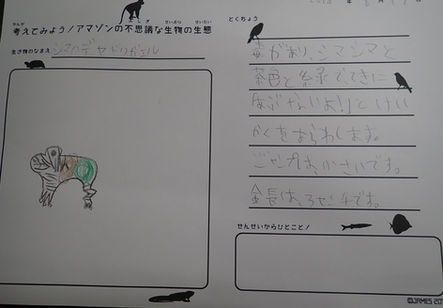 考えてみよう！アマゾンの不思議な生物の生態
かんが
ふしぎ
せいぶつ
せいたい
生き物のなまえ
シマハデヤドクガエル
とくちょう
毒があり、シマシマと
茶色と緑でてきに
「あぶないよ！」とけい
かくをあらわします。
です。
全長は
です。
せんせいからひとこと！
©JAMES